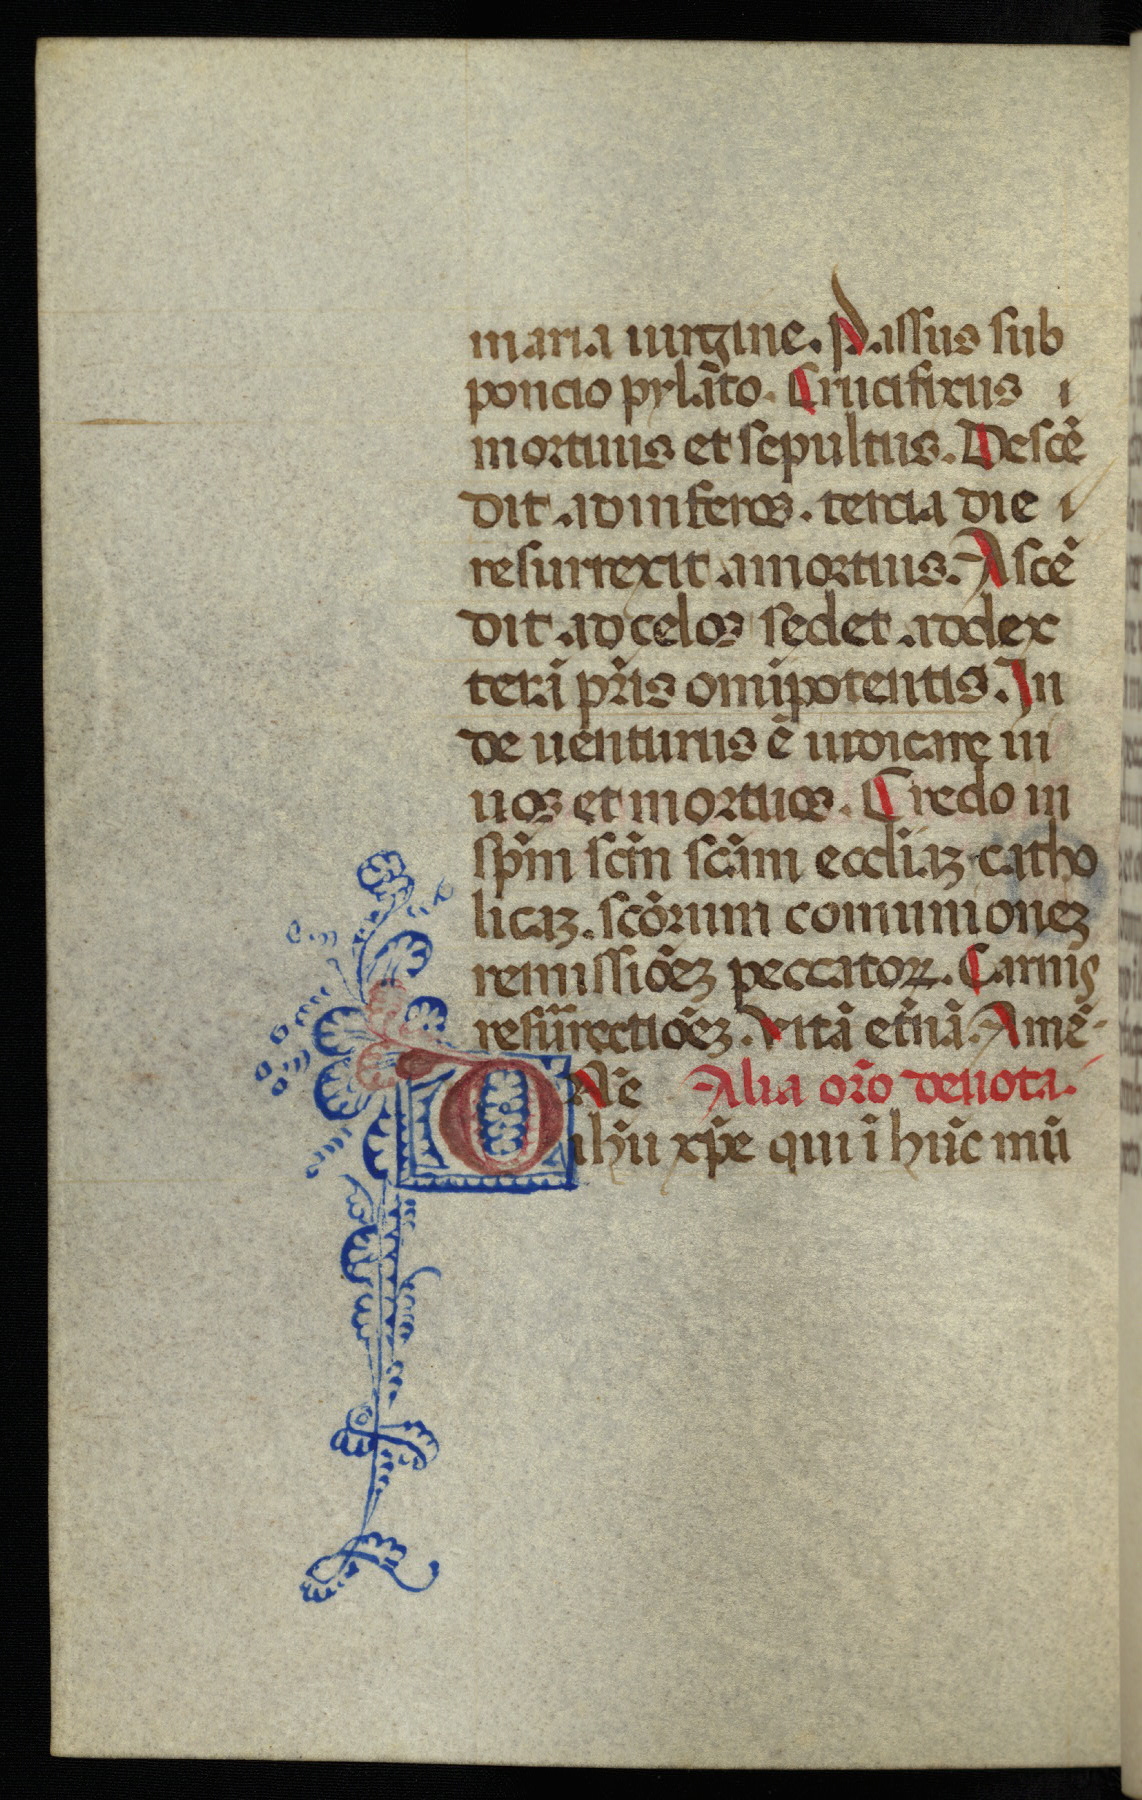 maria uirgine. Passus sub
poncio pylãto. Crucifixus
mortuus et sepultus. Descẽ
dit ad inferos. tercia die
resurrexit a mortuis. Ascẽ
dit ad celos sedet ad dex
terã pr̃is om̃ipotentis. In
de uenturus ẽ iudicare ui
uos et mortuos. Credo in
sp̃m sc̃m sc̃am eccl̃iaz catho
licaz. sc̃orum comunionez
remissiõez peccatoꝝ. Carnis
resur̃rectiõez. Vitã et̃nã. Amẽ
Alia or̃o deuota.
O Ar̃e
ihũ xp̃e qui ĩ hũc mũ